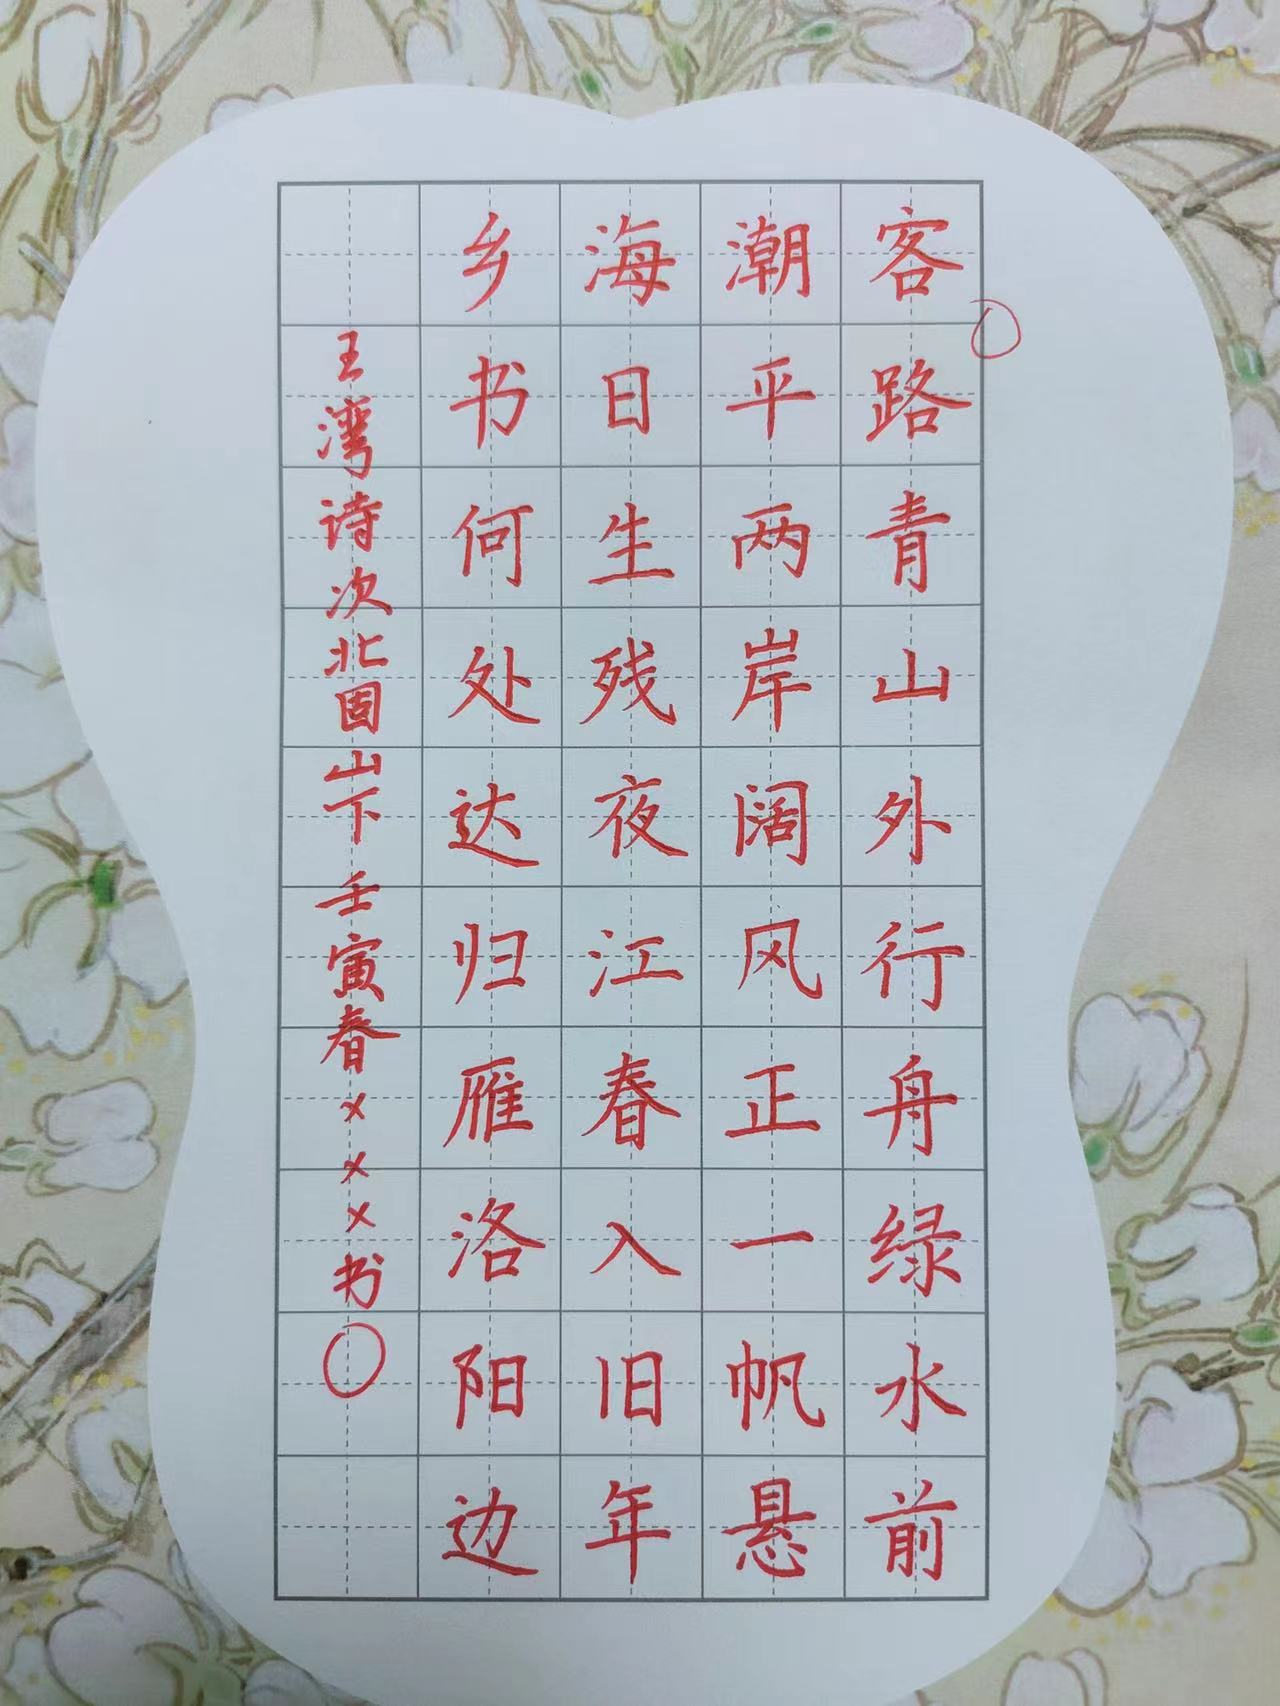 客路青山外行舟绿水前
潮平两岸阔风正一帆悬
海日生残夜江春入旧年
乡书何处达归雁洛阳边
王湾诗次北固山下 壬寅春×××书